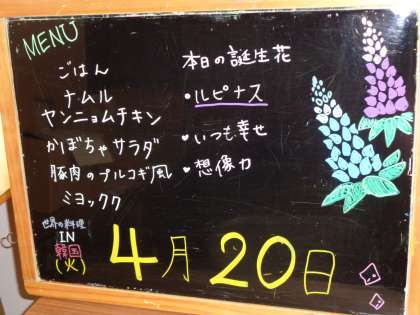 MENU
ごはん
ナムル
ヤンニョムチキン
かぼちゃサラダ
豚肉のプルコギ風
ミヨックク
世界の料理
IN
韓国
(火)
本日の誕生花
・ルピナス
・いつも幸せ
・想像力
4月20日